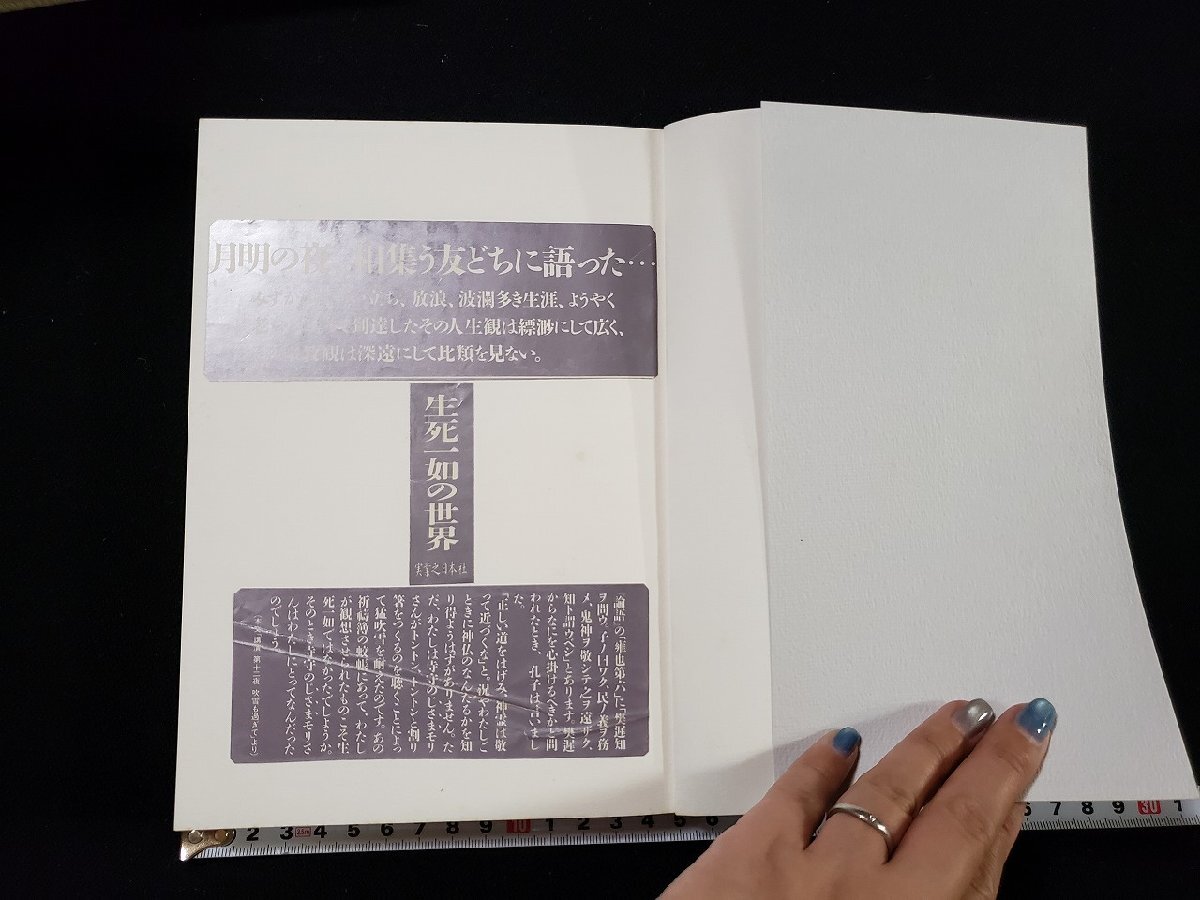 月明の夜 相集う友どちに語った…
立ち、放浪、波瀾多き生涯、ようやく
到達したその人生観は縹渺にして広く、
観は深遠にして比類を見ない。
生死一如の世界
実業之日本社
『論語』の「雍也第六」に「樊遅知
ヲ問ウ。子ノ曰ワク、民ノ義ヲ務
メ、鬼神ヲ敬シテ之ヲ遠ザク、
知ト謂ウベシ」とあります。樊遅
からなにを心掛けるべきかと問
われたとき、孔子は言いまし
た。
「正しい道をはげみ、神霊は敬
って近づくな」と。況やわたしご
ときに神仏のなんたるかを知
り得ようはずがありません。た
だ、わたしは寺守のじさまモリ
さんがトントン、トントンと割り
箸をつくるのを聴くことによっ
て猛吹雪を耐えたのです。あの
祈祷簿の蚊帳にあって、わたし
が観想させられたものこそ生
死一如ではなかったでしょうか。
そのとき寺守のじさまモリさ
んはわたしにとってなんだった
のでしょう。
(本文・講演 第十二夜 吹雪も過ぎてより)
2 3 4 5 6 7 8 9 10 1 2 3 4 5 6
6 7 8 9 30 1